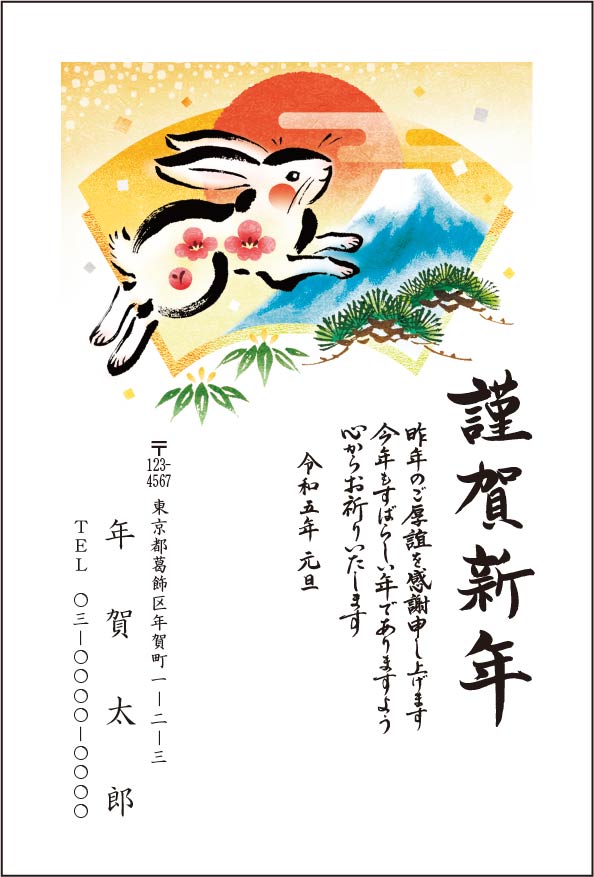 謹賀新年
昨年のご厚誼を感謝申し上げます
今年もすばらしい年でありますよう
心からお祈りいたします
令和五年 元旦
〒123-4567
東京都葛飾区年賀町一－二－三
年賀太郎
TEL 〇三－〇〇〇〇－〇〇〇〇